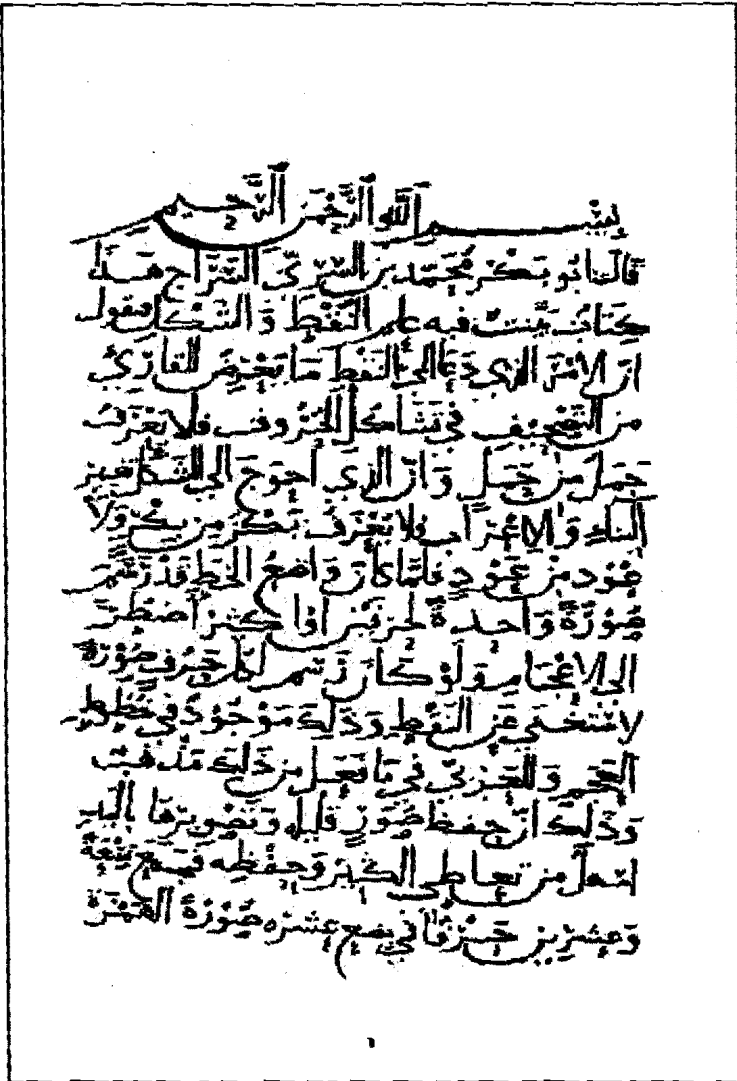 بِسْمِ اللَّهِ الرَّحْمَنِ الرَّحِيمِ
قال أبو بكر محمد بن السري السراج هذا
كتاب بينت فيه علم النقط والشكل فنقول
إن الأمر الذي دعا إلى النقط ما يعترض للقارئ
من التصحيف في تشاكل الحروف فلا يعرف
حمل من جمل وأن الذي أحوج إلى الشكل تغير
البناء والإعراب فلا يعرف بكر من بكر ولا
من فلما كان واضع الخط قد رسم
صورة واحدة لحرفين أو أكثر اضطر
إلى الإعجام ولو كان رسم لكل حرف صورة
لاستغنى عن النقط وذلك موجود في خطوط
العجم وللعربي في ما فعل من ذلك مذهب
وذلك أن حفظ صور قليلة وتصويرها باليد
أسهل من تعاطي الكثير وحفظه فوضع تسعة
وعشرين حرفا في بضع عشرة صورة الهمزة
١